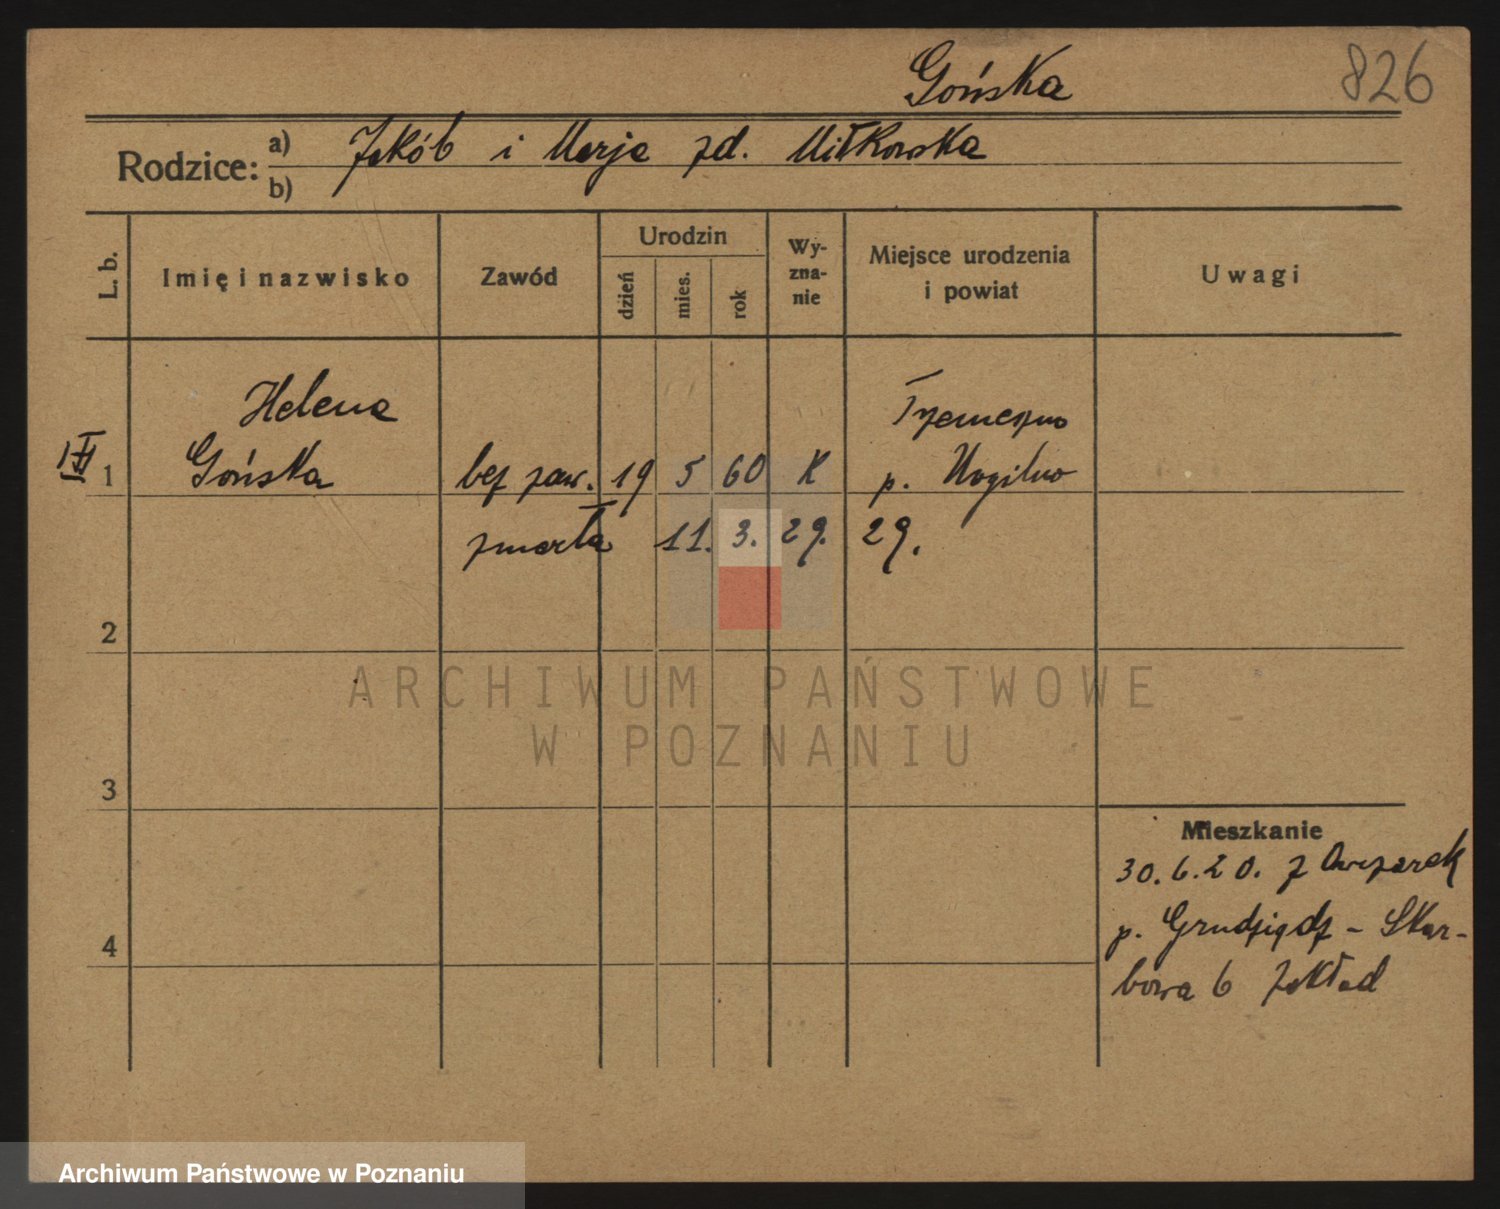 Gońska
826
Rodzice:
a) Jakób i Marja zd. Miłkowska
b)
L. b.
Imię i nazwisko
Zawód
Urodzin
dzień
mies.
rok
Wy-
zna-
nie
Miejsce urodzenia
i powiat
Uwagi
Helena
Gońska
1
bez zaw.
19 5 60 K
Trzemeszno
p. Mogilno
zmarła 11. 3. 29. 29.
2
ARCHIWUM PAŃSTWOWE
W POZNANIU
3
4
Mieszkanie
30.6.20. z Owczarek
p. Grudziądz - Skar-
bowa 6 Zakład
Archiwum Państwowe w Poznaniu